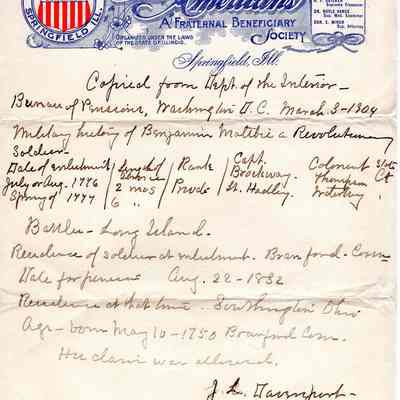 SPRINGFIELD ILL.
Americans
A FRATERNAL BENEFICIARY
SOCIETY
ORGANIZED UNDER THE LAWS
OF THE STATE OF ILLINOIS.
Springfield, Ill.
Copied from Dept. of the Interior –
Bureau of Pensions, Washington D.C. March 3-1904
Military history of Benjamin a Revolutionary
Soldier –
Date of enlistment / Length of Service / Rank / Capt. Colonel State
July or Aug. 1776 / 2 mos / Private / Brockway. Thompson Ct
Spring of 1777 / 6 " / Lt. Hadley.
Battle – Long Island.
Residence of soldier at enlistment. Branford – Conn
Date for pension Aug. 22 – 1832
Residence at that time – Southington Ohio
Age – born May 10 – 1750 Branford Conn.
His claim was allowed.
J. L. Davenport –